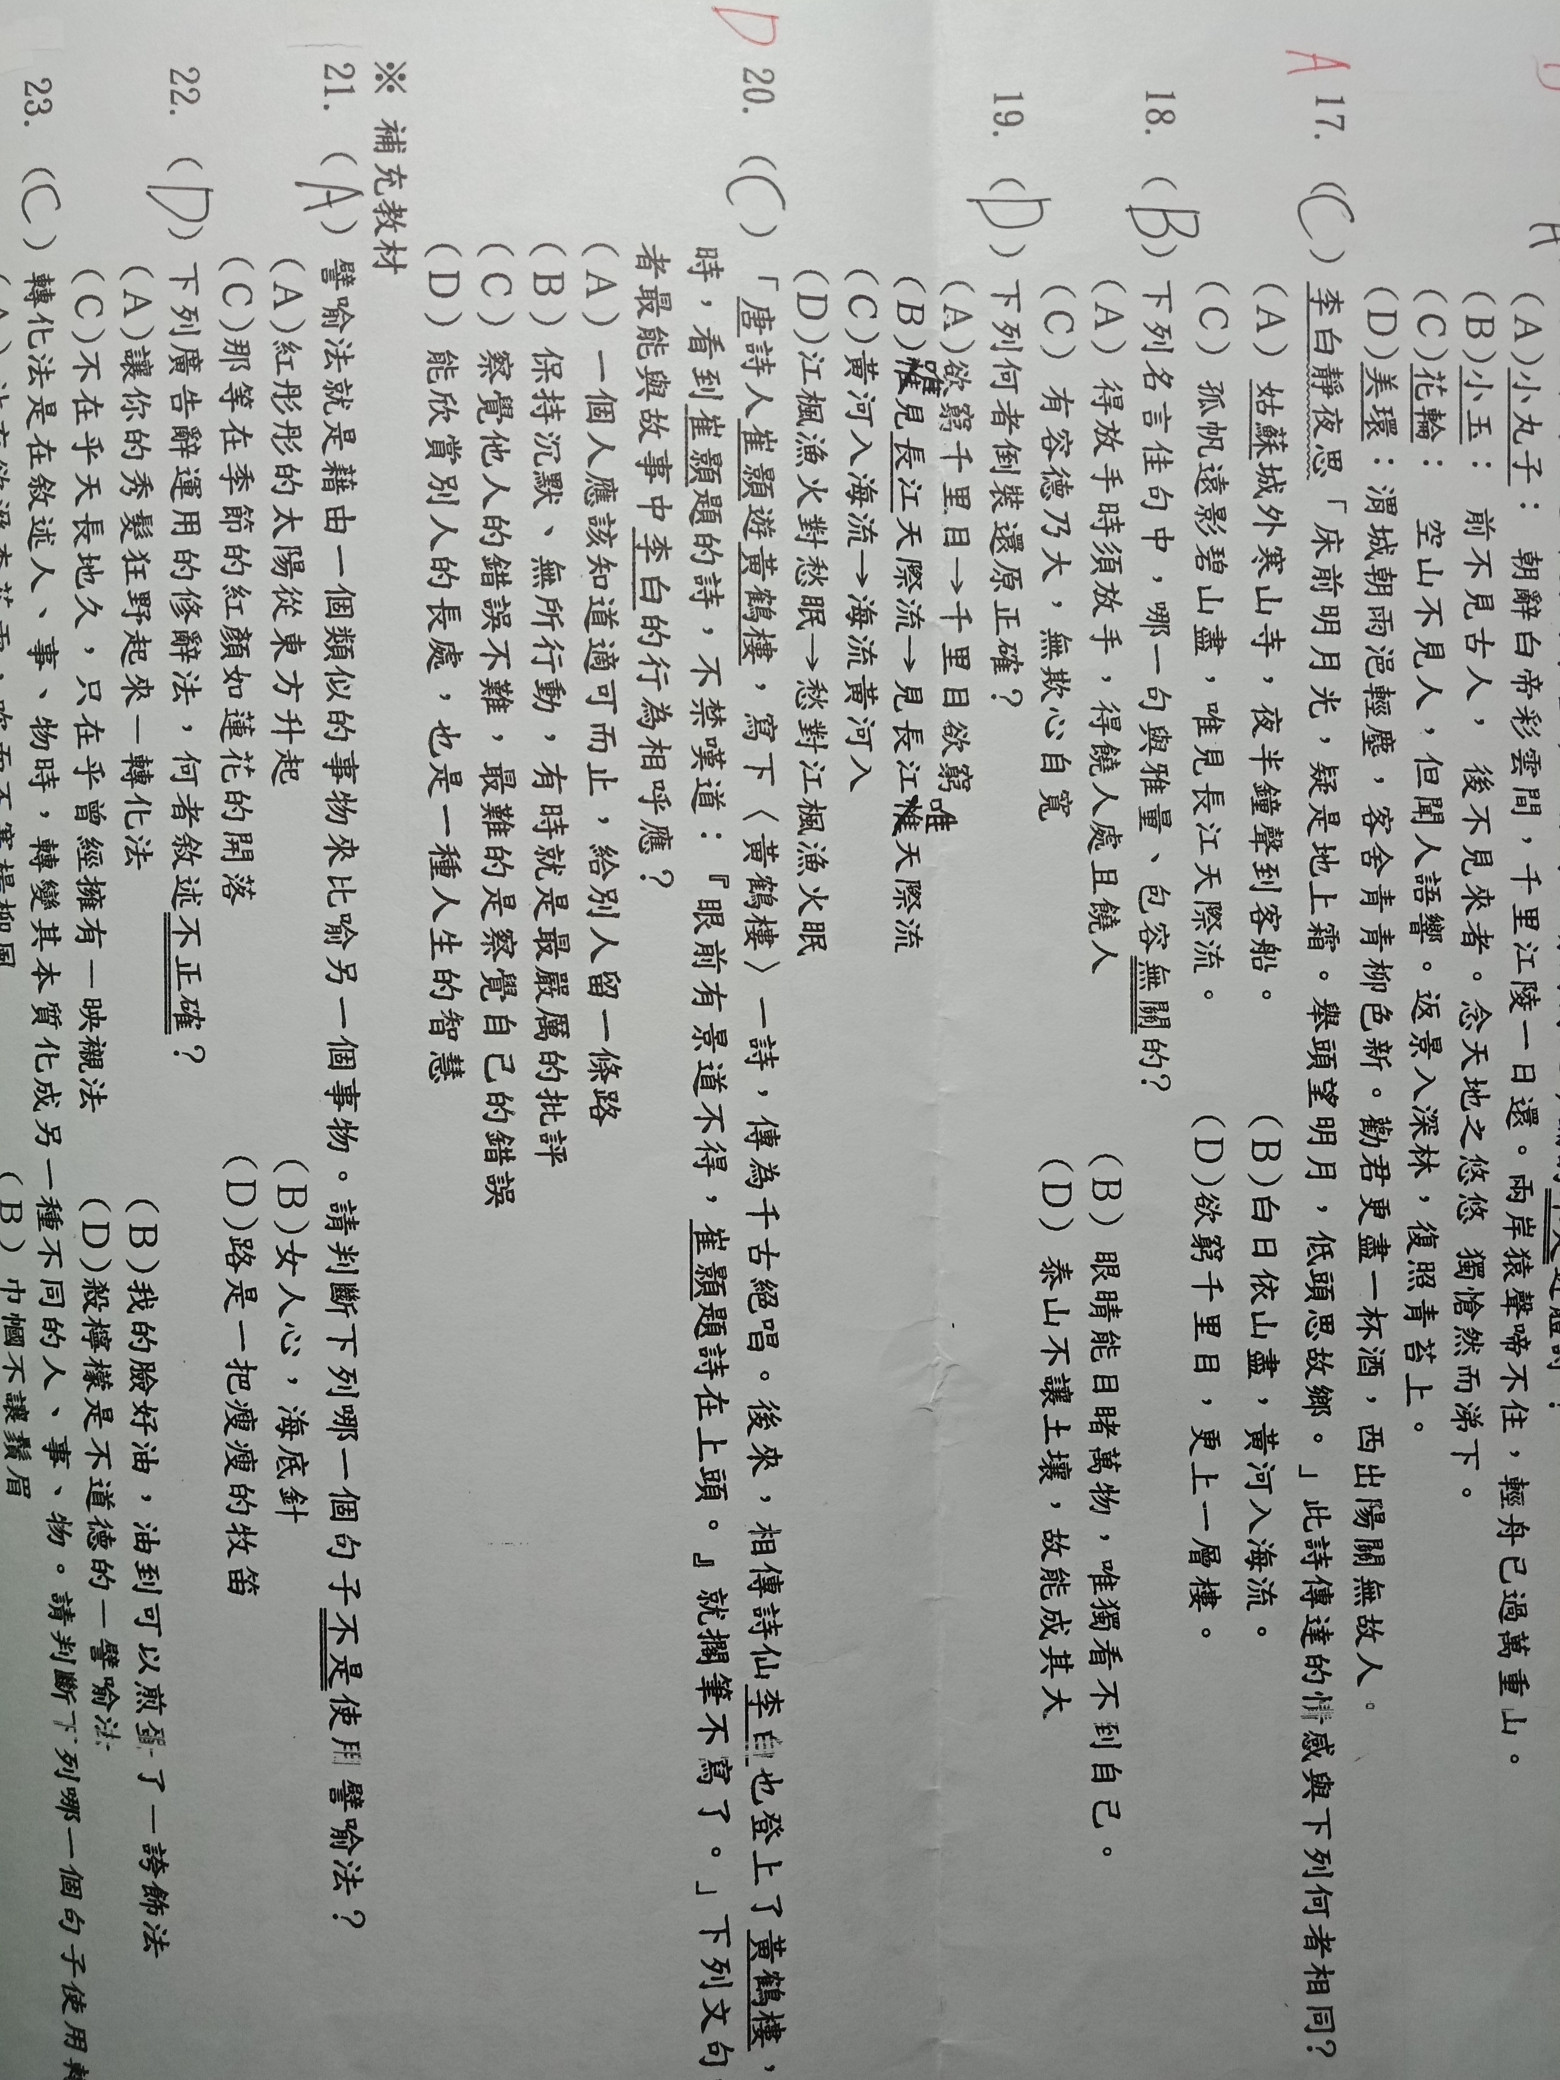 (A)小丸子：朝辭白帝彩雲間，千里江陵一日還。兩岸猿聲啼不住，輕舟已過萬重山。
(B)小玉：前不見古人，後不見來者。念天地之悠悠 獨愴然而涕下。
(C)花輪：空山不見人，但聞人語響。返景入深林，復照青苔上。
(D)美環：渭城朝雨浥輕塵，客舍青青柳色新。勸君更盡一杯酒，西出陽關無故人。
A 17. (C) 李白靜夜思「床前明月光，疑是地上霜。舉頭望明月，低頭思故鄉。」此詩傳達的情感與下列何者相同？
(A) 姑蘇城外寒山寺，夜半鐘聲到客船。 (B)白日依山盡，黃河入海流。
(C) 孤帆遠影碧山盡，唯見長江天際流。 (D)欲窮千里目，更上一層樓。
18. (B) 下列名言佳句中，哪一句與雅量、包容無關的？
(A) 得放手時須放手，得饒人處且饒人 (B) 眼睛能目睹萬物，唯獨看不到自己。
(C) 有容德乃大，無欺心自寬 (D) 泰山不讓土壤，故能成其大
19. (D) 下列何者倒裝還原正確？
(A)欲窮千里目→千里目欲窮
(B)唯見長江天際流→見長江唯天際流
(C)黃河入海流→海流黃河入
(D)江楓漁火對愁眠→愁對江楓漁火眠
D 20. (C) 「唐詩人崔顥遊黃鶴樓，寫下〈黃鶴樓〉一詩，傳為千古絕唱。後來，相傳詩仙李白也登上了黃鶴樓，
時，看到崔顥題的詩，不禁嘆道：『眼前有景道不得，崔顥題詩在上頭。』就擱筆不寫了。」下列文句，
者最能與故事中李白的行為相呼應？
(A) 一個人應該知道適可而止，給別人留一條路
(B) 保持沉默、無所行動，有時就是最嚴厲的批評
(C) 察覺他人的錯誤不難，最難的是察覺自己的錯誤
(D) 能欣賞別人的長處，也是一種人生的智慧
※ 補充教材
21. (A) 譬喻法就是藉由一個類似的事物來比喻另一個事物。請判斷下列哪一個句子不是使用譬喻法？
(A)紅彤彤的太陽從東方升起 (B)女人心，海底針
(C)那等在季節的紅顏如蓮花的開落 (D)路是一把瘦瘦的牧笛
22. (D) 下列廣告辭運用的修辭法，何者敘述不正確？
(A)讓你的秀髮狂野起來—轉化法 (B)我的臉好油，油到可以煎蛋了—誇飾法
(C)不在乎天長地久，只在乎曾經擁有—映襯法 (D)殺檸檬是不道德的—譬喻法
23. (C) 轉化法是在敘述人、事、物時，轉變其本質化成另一種不同的人、事、物。請判斷下列哪一個句子使用
(B) 巾幗不讓鬚眉